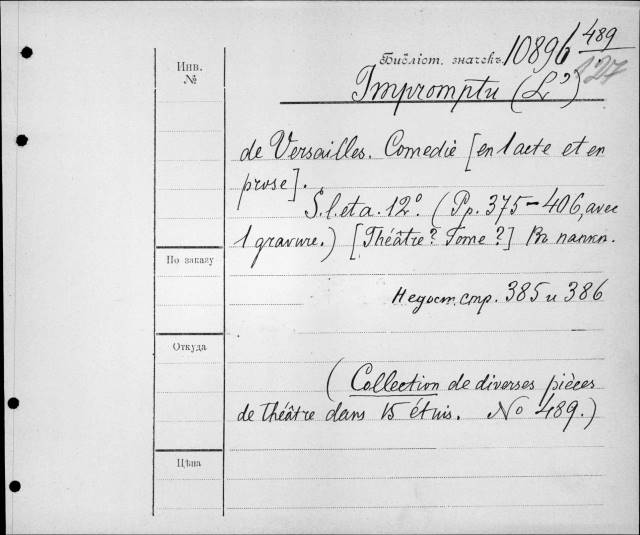 489
Библіот. значекъ 10896
127
Инв.
№
Impromptu (L')
de Versailles. Comedie [en 1 acte et en
prose].
S. l. et a. 12°. (Pp. 375-406, avec
1 gravure.) [Théâtre? Tome?] Въ папкѣ.
По заказу
Недост. стр. 385 и 386
Откуда
(Collection de diverses pièces
de théâtre dans 15 étuis. No 489.)
Цѣна